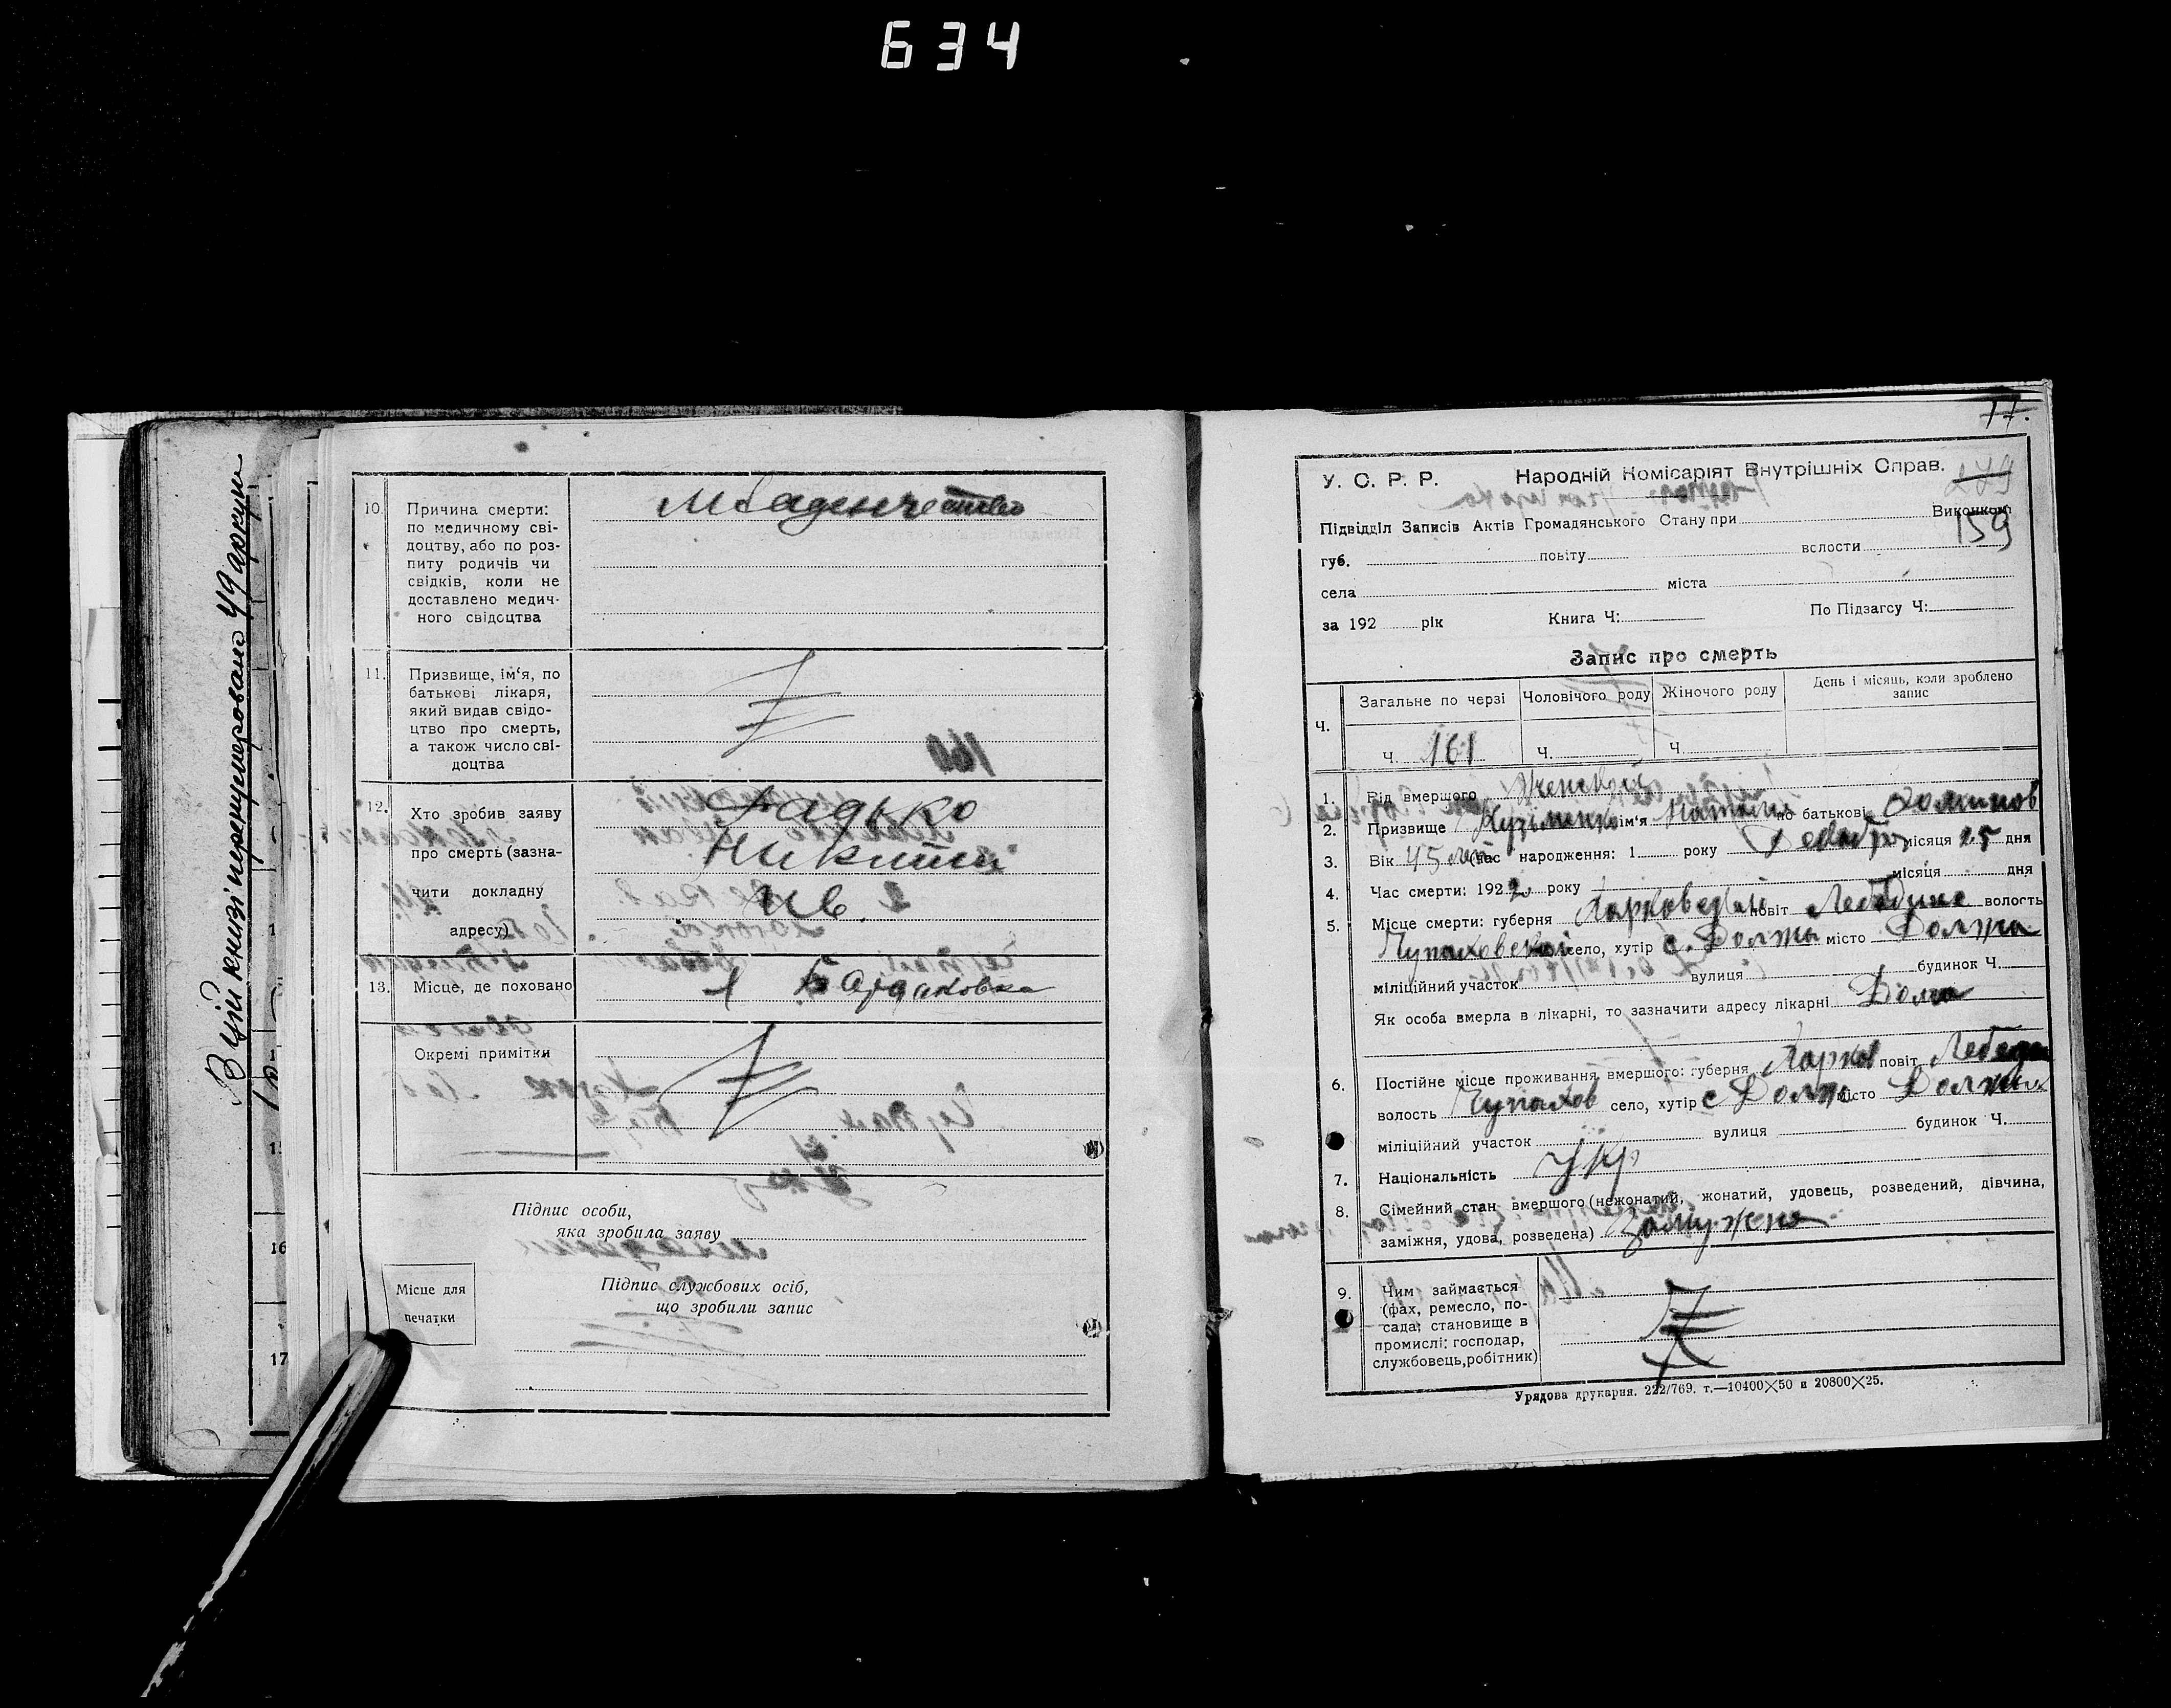 634
В цій книзі перенумеровано 49 аркуш
10.
Причина смерти:
по медичному сві-
доцтву, або по роз-
питу родичів чи
свідків, коли не
доставлено медич-
ного свідоцтва
Младенчество
11.
Призвище, ім'я, по
батькові лікаря,
який видав свідо-
цтво про смерть,
а також число сві-
доцтва
12.
Хто зробив заяву
про смерть (зазна-
чити докладну
адресу)
Радько
Никити
Ив.
13.
Місце, де поховано
Окремі примітки
Підпис особи,
яка зробила заяву
Місце для
печатки
Підпис службових осіб,
що зробили запис
16
17
17.
У. С. Р. Р. Народній Комісаріят Внутрішніх Справ.
279
Підвідділ Записів Актів Громадянського Стану при Виконком
159
губ. повіту волости
села міста
за 192 рік Книга Ч: По Підзагсу Ч:
Запис про смерть
Ч.
Загальне по черзі Чоловічого роду Жіночого роду День і місяць, коли зроблено
запис
Ч. 161 Ч. Ч.
1. Рід вмершого Женский
2. Призвище Кузьменко ім'я Наталія по батькові
3. Вік 45 лет (час народження: 1 року Декабря місяця 25 дня
4. Час смерти: 1922 року місяця дня
5. Місце смерти: губерня Харковский повіт Лебедине волость
Чупаховской село, хутір с. Должа місто Должа
міліційний участок вулиця будинок Ч.
Як особа вмерла в лікарні, то зазначити адресу лікарні
6. Постійне місце проживання вмершого: губерня Харков повіт Лебеди
волость Чупахов село, хутір с Долж місто
міліційний участок вулиця будинок Ч.
7. Національність Укр
8. Сімейний стан вмершого (нежонатий, жонатий, удовець, розведений, дівчина,
заміжня, удова, розведена) Замужня
9. Чим займається
(фах, ремесло, по-
сада; становище в
промислі: господар,
службовець, робітник)
Урядова друкарня. 222/769. т.—10400×50 и 20800×25.